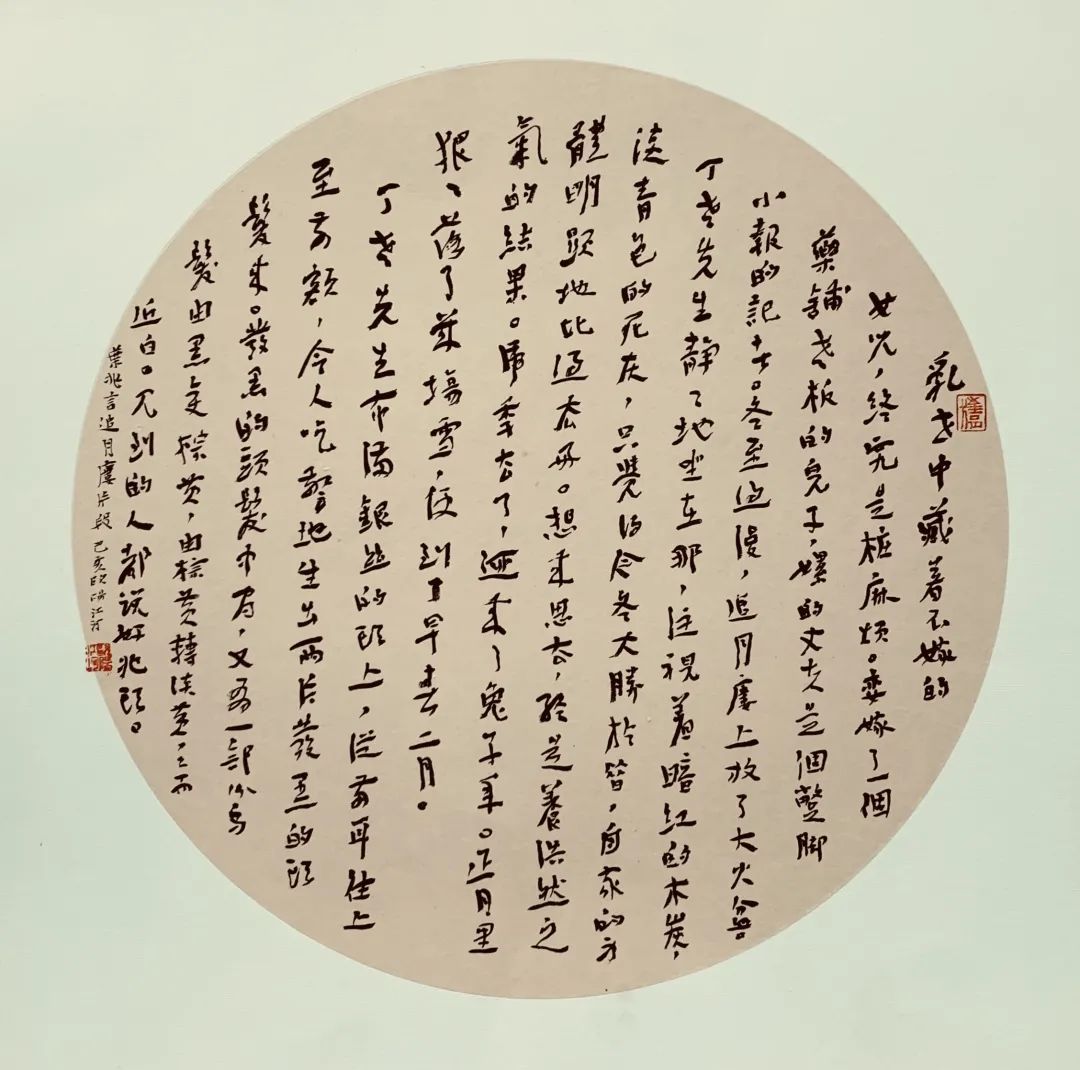 亂世中藏着不嫁的
女兒，終究是樁麻煩。委嫁了一個
藥鋪老板的兒子，嫘的丈夫是個蹩腳
小報的記者。冬至過後，追月廔上放了大火盆
丁老先生靜靜地坐在那，注視着暗紅的木炭，
淡青色的死灰，只覺得今冬大勝於昔，自家的身
體明顯地比過去好。想來思去，終是養浩然之
氣的結果。虎年去了，迎來了兔子年。正月里
狠狠落了幾場雪，便到了早春二月。
丁老先生布滿銀絲的頭上，從前耳往上
至前額，令人吃驚地生出兩片發黑的頭
髮來。發黑的頭髮中有，又有一部份烏
髮由黑变棕黄，由棕黄轉淡黄，而
近白。見到的人都說好兆頭。
葉兆言追月廔片段 己亥江河